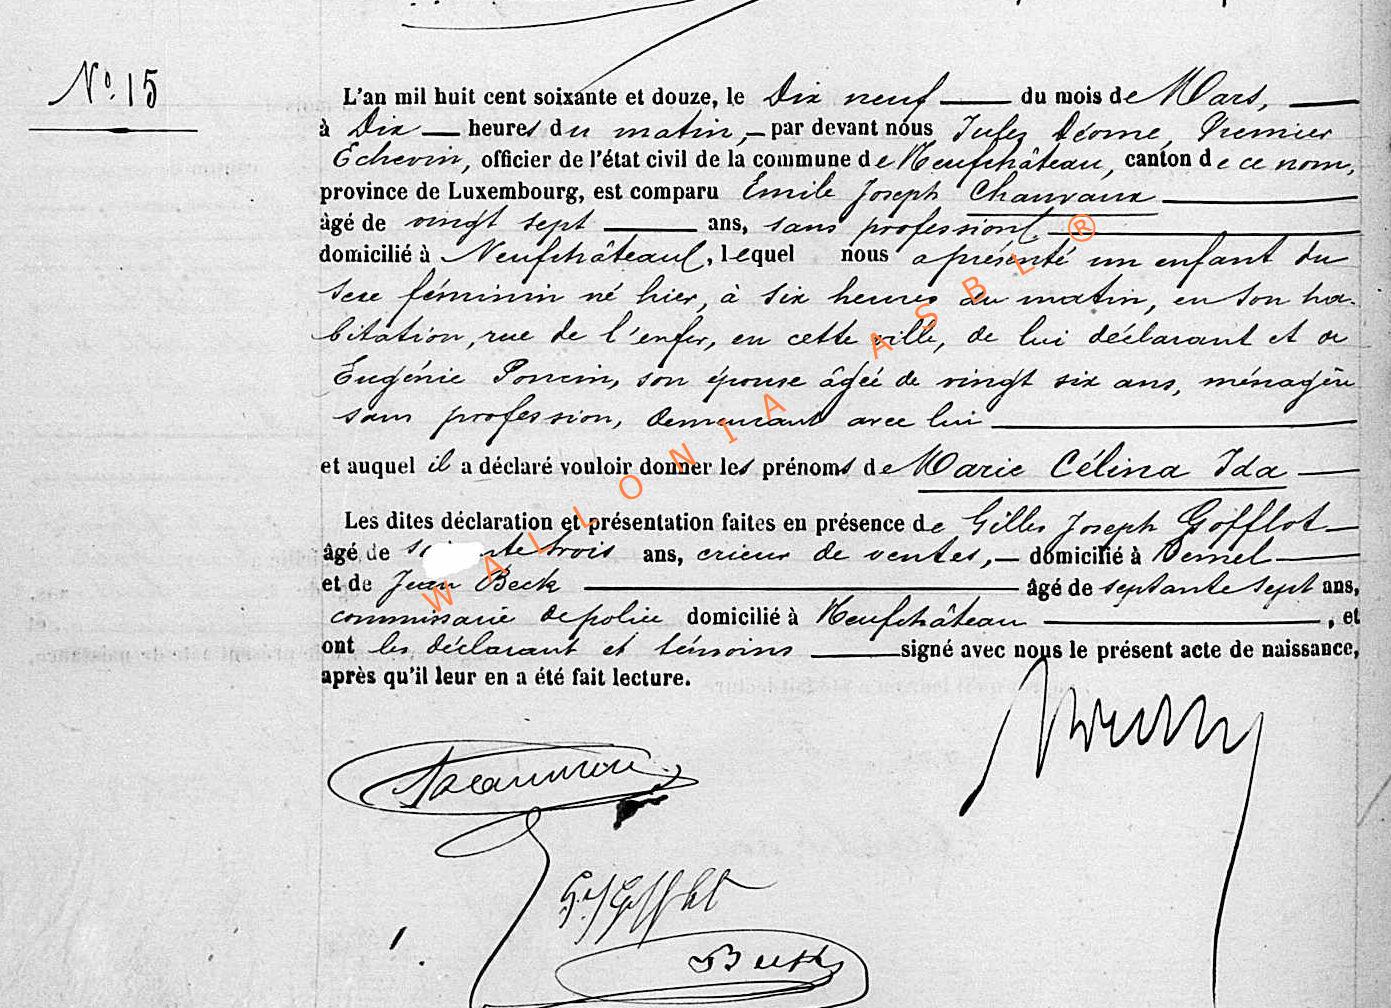 N° 15
L'an mil huit cent soixante et douze, le Dix neuf du mois de Mars,
à Dix heures du matin, par devant nous Jules Déome, Premier
Echevin, officier de l'état civil de la commune de Neufchâteau, canton de ce nom,
province de Luxembourg, est comparu Emile Joseph Chauvaux
âgé de vingt sept ans, sans profession
domicilié à Neufchâteau, lequel nous a présenté un enfant du
sexe féminin né hier, à six heures du matin, en son ha-
bitation, rue de l'enfer, en cette ville, de lui déclarant et de
Eugénie Poncin, son épouse âgée de vingt six ans, ménagère
sans profession, demeurant avec lui
et auquel il a déclaré vouloir donner les prénoms de Marie Célina Ida
Les dites déclaration et présentation faites en présence de Gilles Joseph Gofflot
âgé de trois ans, crieur de ventes, domicilié à
et de Jean Beck âgé de septante sept ans,
commissaire de police domicilié à Neufchâteau, et
ont les déclarant et témoins signé avec nous le présent acte de naissance,
après qu'il leur en a été fait lecture.
G. J. Gofflot
Beck
WALLONIA ASBL ®